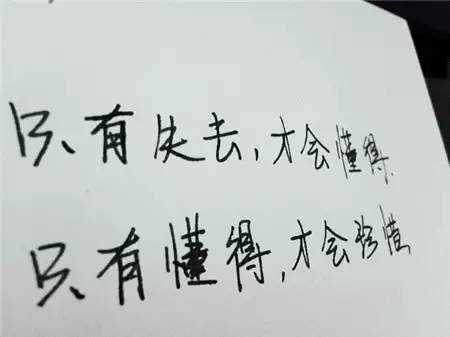 只有失去,才会懂得、
只有懂得,才会珍惜